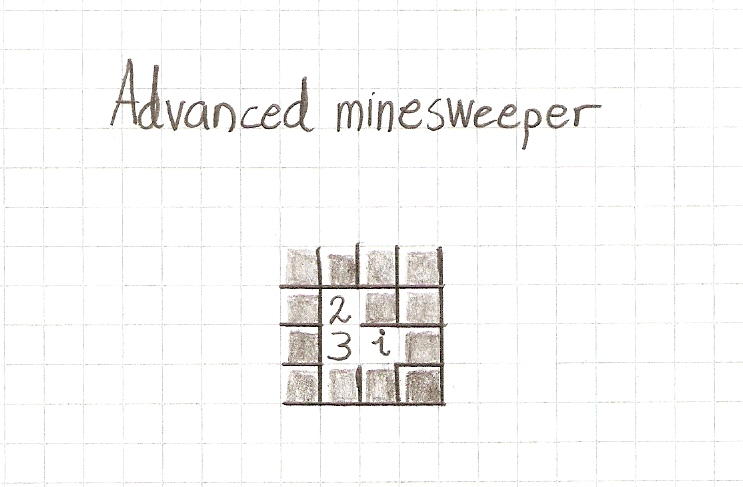 Advanced minesweeper
2
3 i